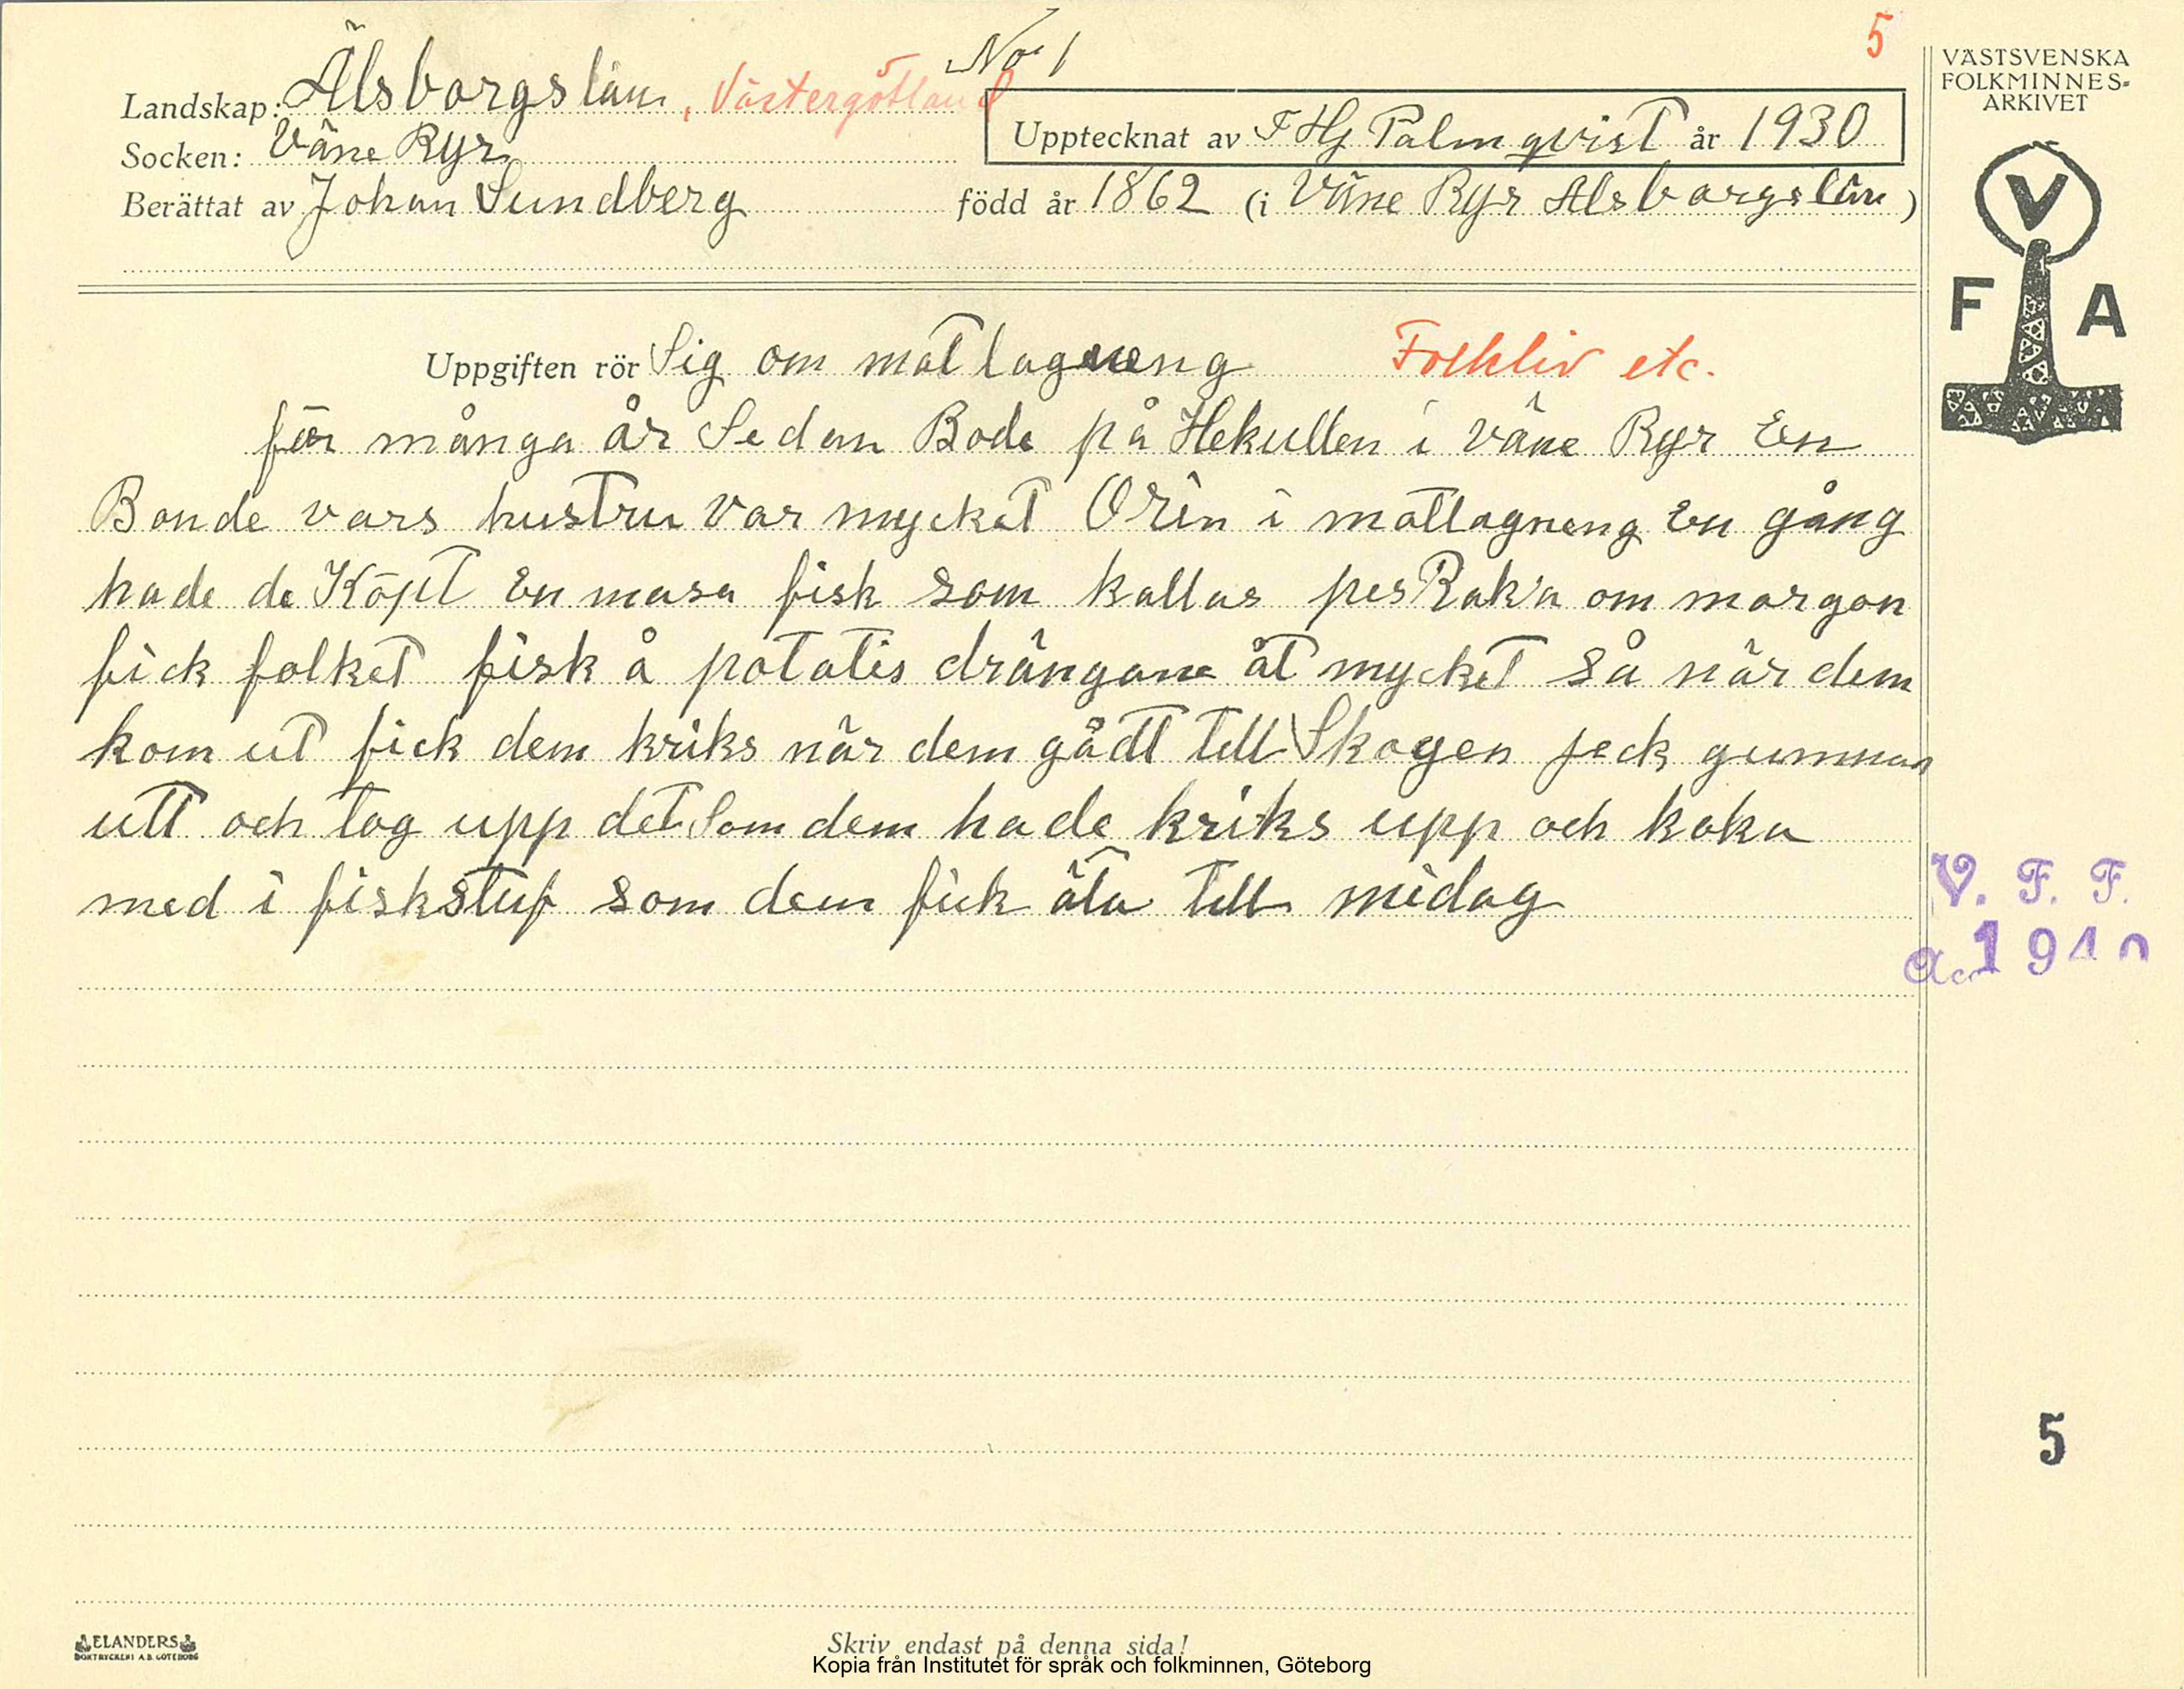 No 1
5
Landskap: Älsborgslän, Västergötland
Socken: Väne Ryr
Upptecknat av F Hj Palmqvist år 1930
Berättat av Johan Sundberg född år 1862 (i Väne Ryr Älsborgslän)
VÄSTSVENSKA
FOLKMINNES-
ARKIVET
V
F A
Uppgiften rör Sig om matlagneng Folkliv etc.
för många år Sedan Bode på Hekullen i Väne Ryr En
Bonde vars hustru var mycket Oren i matlagneng En gång
hade de Köpt En masa fisk som kallas pesRak'a om morgon
fick folket fisk å potatis drängane åt mycket så når dem
kom ut fick dem kräks när dem gådt till Skogen jeck gumman
utt och tog upp det Som dem hade kräks upp och koka
med i fiskstuf som dem fick äta till midag
V. F. F.
Acc 1940
5
ELANDERS
BOKTRYCKERI A.B. GÖTEBORG
Skriv endast på denna sida!
Kopia från Institutet för språk och folkminnen, Göteborg